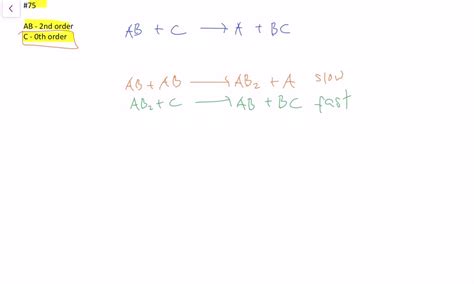 #75
AB - 2nd order
C - 0th order
AB + C → A + BC
AB + AB → AB₂ + A slow
AB₂ + C → AB + BC fast